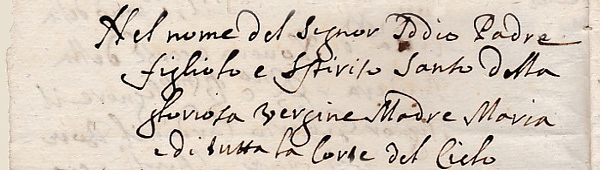 Nel nome del Signor Iddio Padre
figliolo e Spirito Santo della
gloriosa vergine Madre Maria
e di tutta la Corte del Cielo